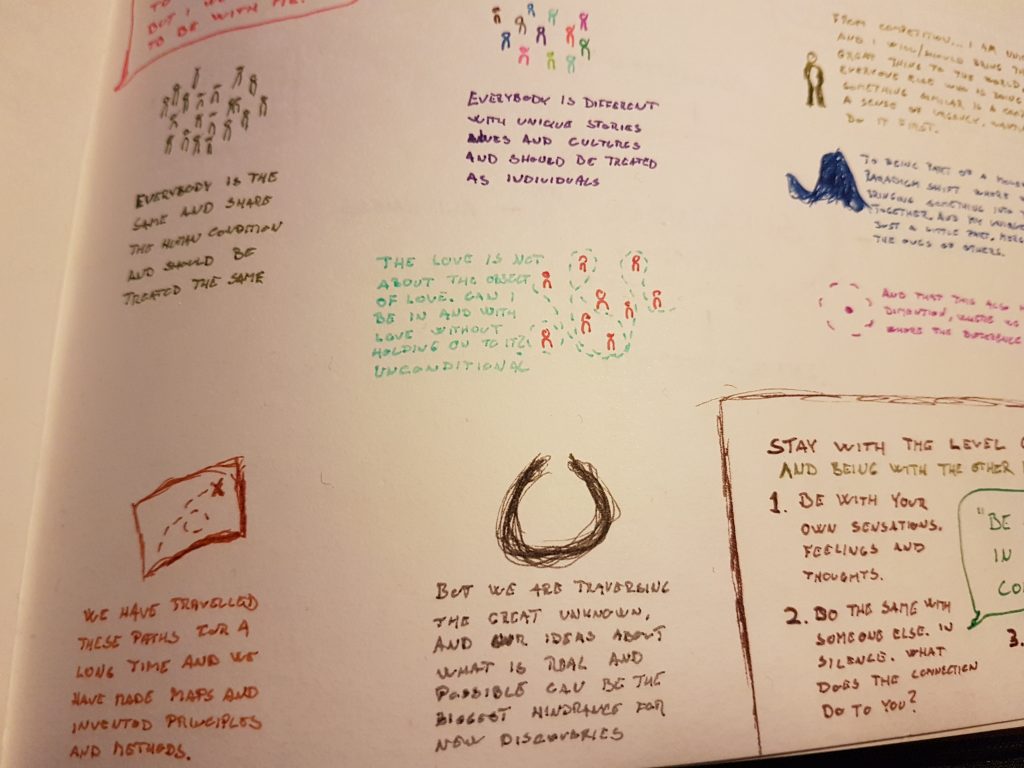 TO
BUT I
TO BE WITH ME.
EVERYBODY IS THE
SAME AND SHARE
THE HUMAN CONDITION
AND SHOULD BE
TREATED THE SAME
EVERYBODY IS DIFFERENT
WITH UNIQUE STORIES
AND CULTURES
AND SHOULD BE TREATED
AS INDIVIDUALS
FROM COMPETITION... I AM
AND I WILL/SHOULD BRING
GREAT THING TO THE WORLD
EVERYONE ELSE WHO IS DOING
SOMETHING SIMILAR IS A
A SENSE OF URGENCY,
DO IT FIRST.
TO BEING PART OF A
PARADIGM SHIFT WHERE
BRINGING SOMETHING INTO
TOGETHER. AND MY
JUST A LITTLE PART,
THE ONES OF OTHERS.
THE LOVE IS NOT
ABOUT THE OBJECT
OF LOVE. CAN I
BE IN AND WITH
LOVE WITHOUT
HOLDING ON TO IT?
UNCONDITIONAL
AND THAT THIS ALSO
DIMENTION, WHERE WE
WHERE THE DIFFERENCE
WE HAVE TRAVELLED
THESE PATHS FOR A
LONG TIME AND WE
HAVE MADE MAPS AND
INVENTED PRINCIPLES
AND METHODS.
BUT WE ARE TRAVERSING
THE GREAT UNKNOWN,
AND OUR IDEAS ABOUT
WHAT IS REAL AND
POSSIBLE CAN BE THE
BIGGEST HINDRANCE FOR
NEW DISCOVERIES
STAY WITH THE LEVEL
AND BEING WITH THE OTHER
1. BE WITH YOUR
OWN SENSATIONS.
FEELINGS AND
THOUGHTS.
2. DO THE SAME WITH
SOMEONE ELSE. IN
SILENCE. WHAT
DOES THE CONNECTION
DO TO YOU?
"BE
IN
CO
3.